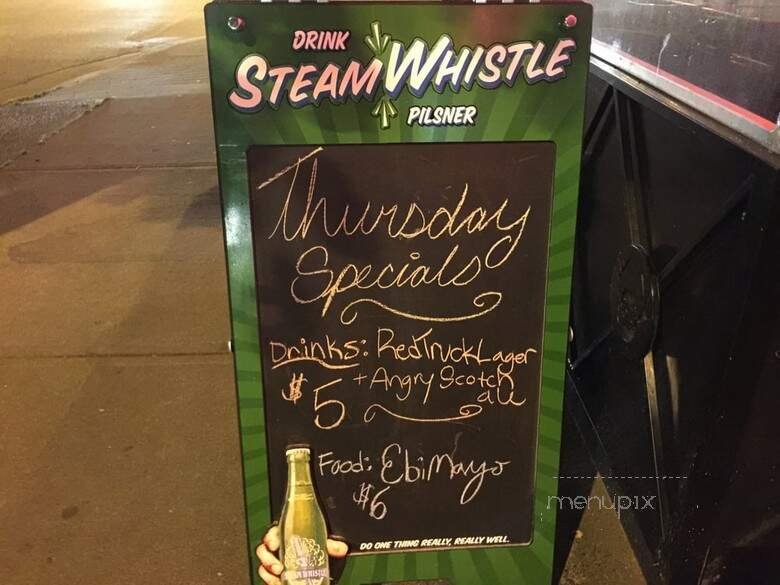 DRINK
STEAM WHISTLE
PILSNER
Thursday
Specials
Drinks: Red Truck Lager
+ Angry Scotch
ale
$5
Food: Ebi Mayo
$6
DO ONE THING REALLY, REALLY WELL.
STEAM WHISTLE
menupix